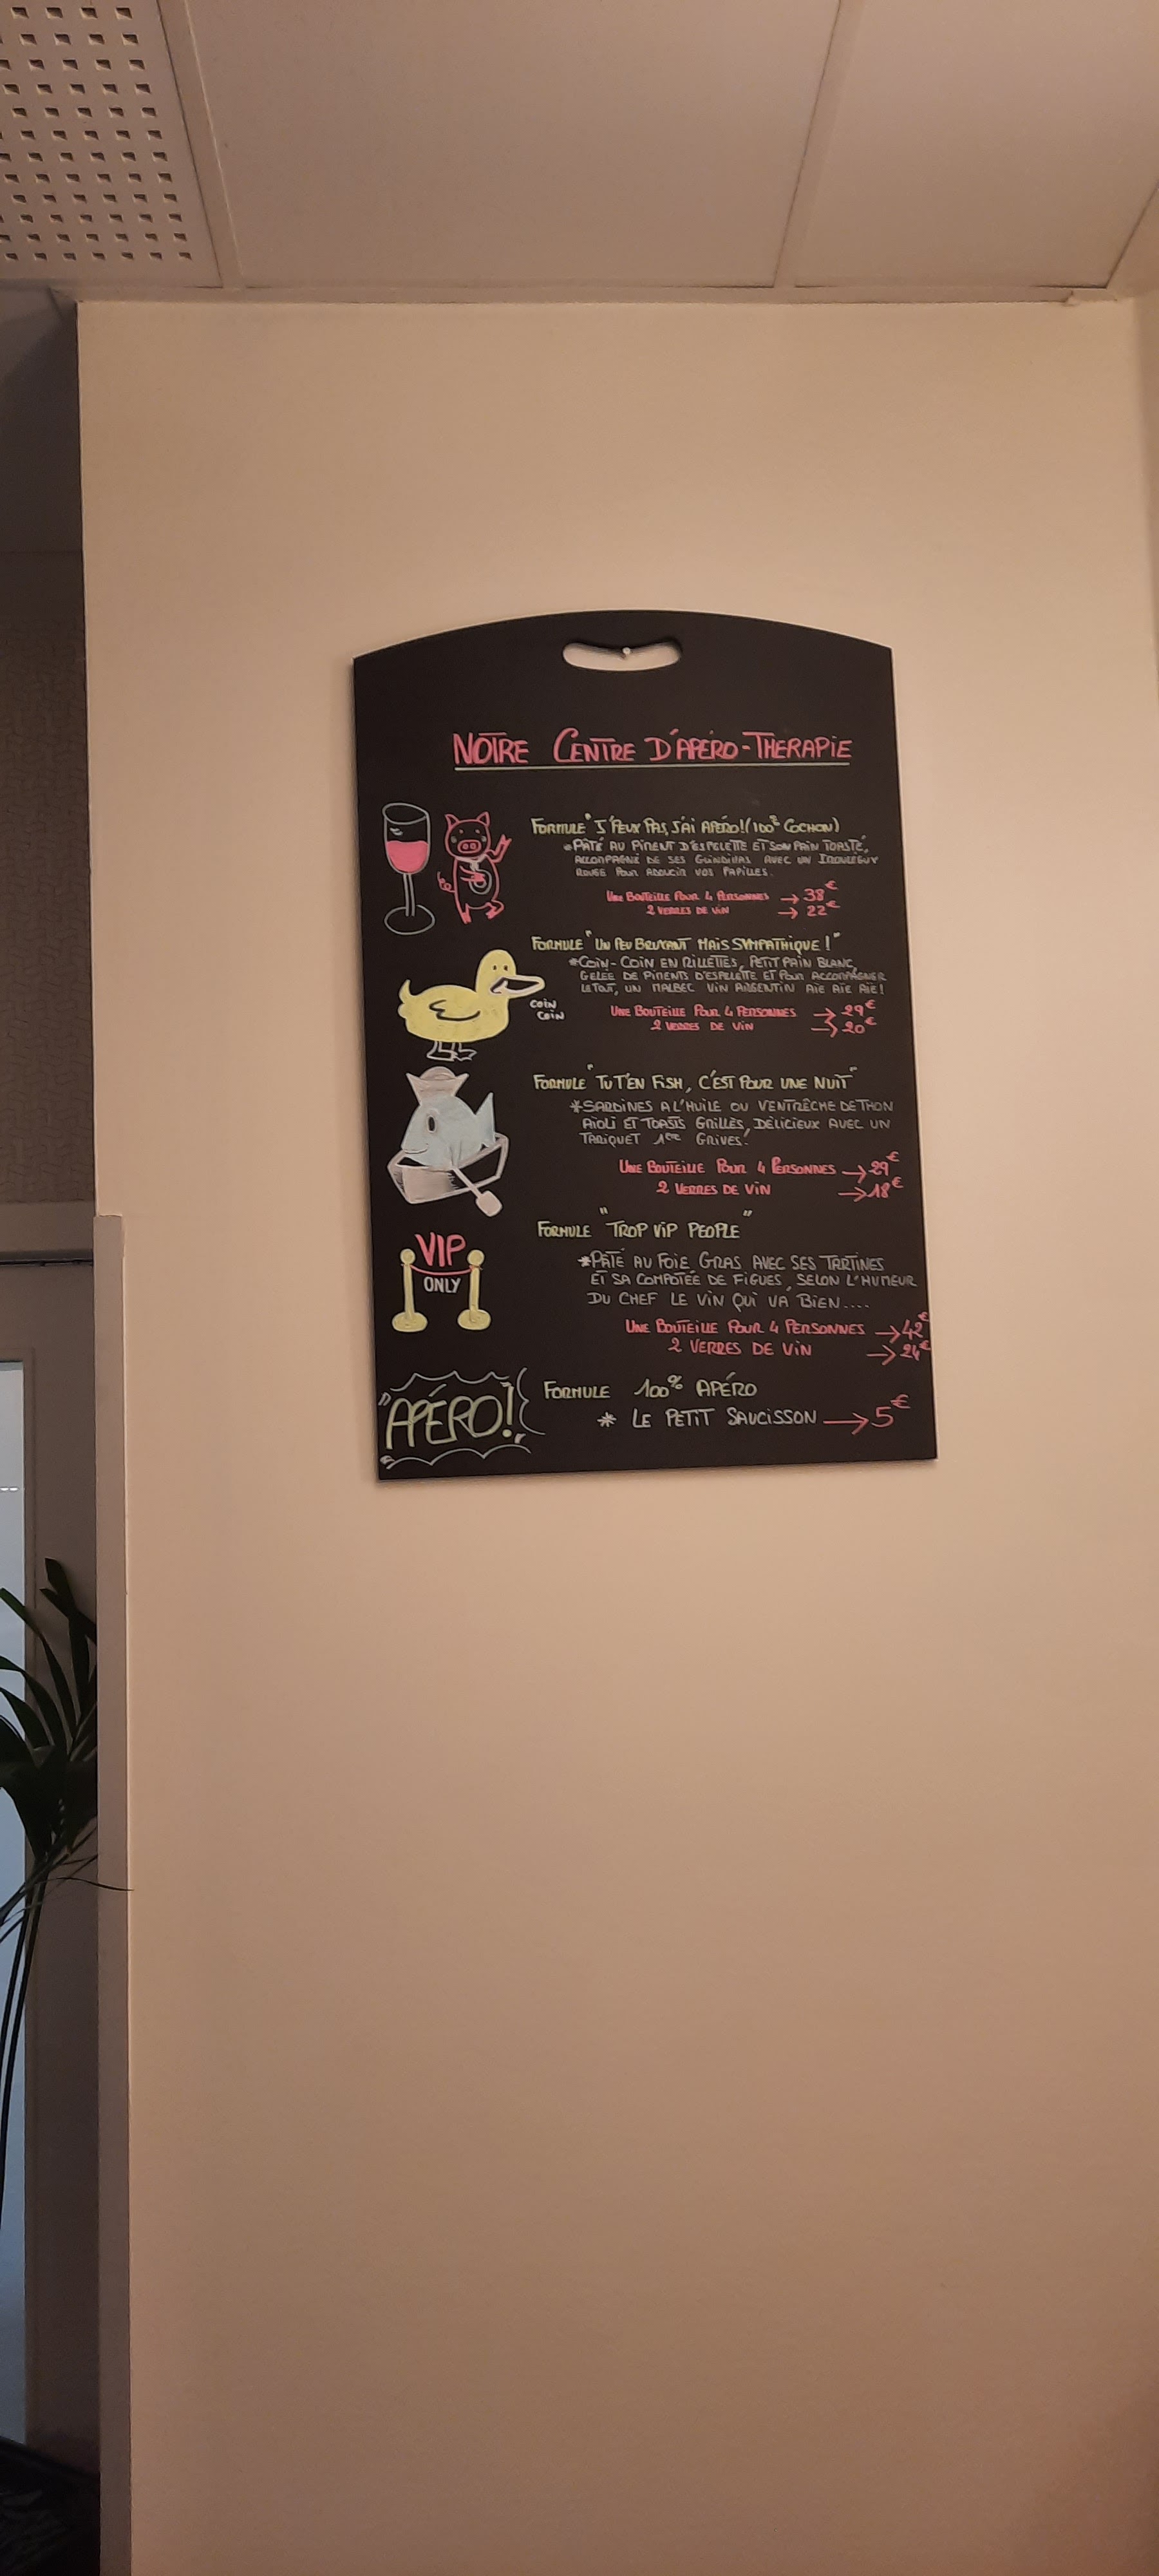 NOTRE CENTRE D'APÉRO-THERAPIE
FORMULE "J'PEUX PAS, J'AI APÉRO! (100% COCHON)
*PÂTÉ AU PIMENT D'ESPELETTE ET SON PAIN TOASTÉ,
ACCOMPAGNÉ DE SES GUINDILLAS AVEC UN IROULEGUY
ROUGE POUR ADOUCIR VOS PAPILLES.
UNE BOUTEILLE POUR 4 PERSONNES → 38€
2 VERRES DE VIN → 22€
FORMULE "UN PEU BRUYANT MAIS SYMPATHIQUE!"
*COIN-COIN EN RILLETTES, PETIT PAIN BLANC,
GELÉE DE PIMENTS D'ESPELETTE ET POUR ACCOMPAGNER
LE TOUT, UN MALBEC VIN ARGENTIN AÏE AÏE AÏE!
COIN
COIN
UNE BOUTEILLE POUR 4 PERSONNES → 29€
2 VERRES DE VIN → 20€
FORMULE "TU T'EN FISH, C'EST POUR UNE NUIT"
*SARDINES A L'HUILE OU VENTRÊCHE DE THON
AÏOLI ET TOASTS GRILLÉS, DÉLICIEUX AVEC UN
TARIQUET 1ÈRE GRIVES!
UNE BOUTEILLE POUR 4 PERSONNES → 29€
2 VERRES DE VIN → 18€
FORMULE "TROP VIP PEOPLE"
VIP
ONLY
*PÂTÉ AU FOIE GRAS AVEC SES TARTINES
ET SA COMPOTÉE DE FIGUES, SELON L'HUMEUR
DU CHEF LE VIN QUI VA BIEN....
UNE BOUTEILLE POUR 4 PERSONNES → 42€
2 VERRES DE VIN → 24€
"APÉRO!"
FORMULE 100% APÉRO
* LE PETIT SAUCISSON → 5€